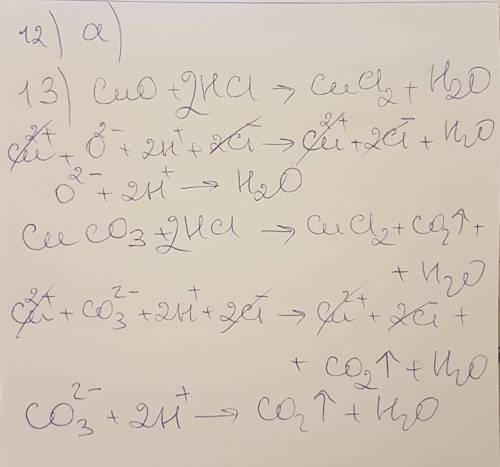 12) a)
13) CuO + 2HCl → CuCl₂ + H₂O
Cu²⁺ + O²⁻ + 2H⁺ + 2Cl⁻ → Cu²⁺ + 2Cl⁻ + H₂O
O²⁻ + 2H⁺ → H₂O
CuCO₃ + 2HCl → CuCl₂ + CO₂↑ +
+ H₂O
Cu²⁺ + CO₃²⁻ + 2H⁺ + 2Cl⁻ → Cu²⁺ + 2Cl⁻ +
+ CO₂↑ + H₂O
CO₃²⁻ + 2H⁺ → CO₂↑ + H₂O